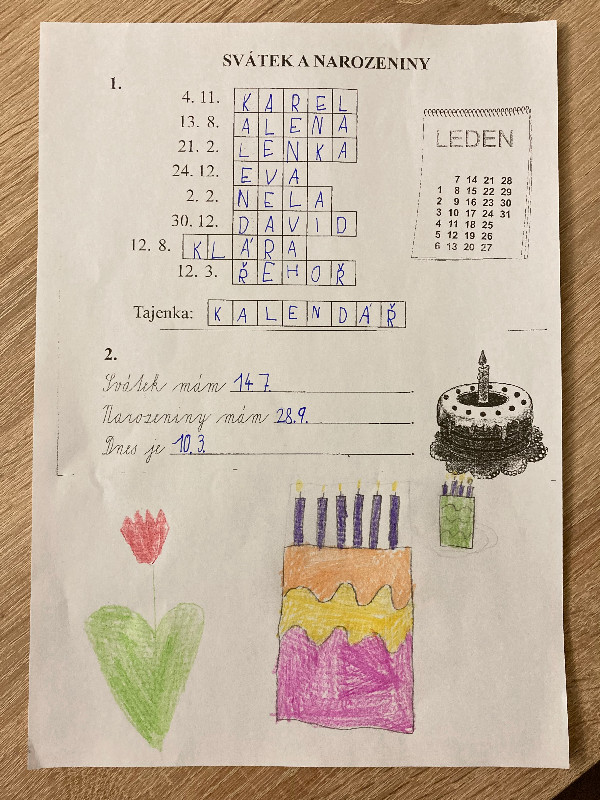 SVÁTEK A NAROZENINY
1.
4. 11. KAREL
13. 8. ALENA
21. 2. LENKA
24. 12. EVA
2. 2. NELA
30. 12. DAVID
12. 8. KLÁRA
12. 3. ŘEHOŘ
Tajenka: KALENDÁŘ
LEDEN
7 14 21 28
1 8 15 22 29
2 9 16 23 30
3 10 17 24 31
4 11 18 25
5 12 19 26
6 13 20 27
2.
Svátek mám 14 7.
Narozeniny mám 28.9.
Dnes je 10.3.